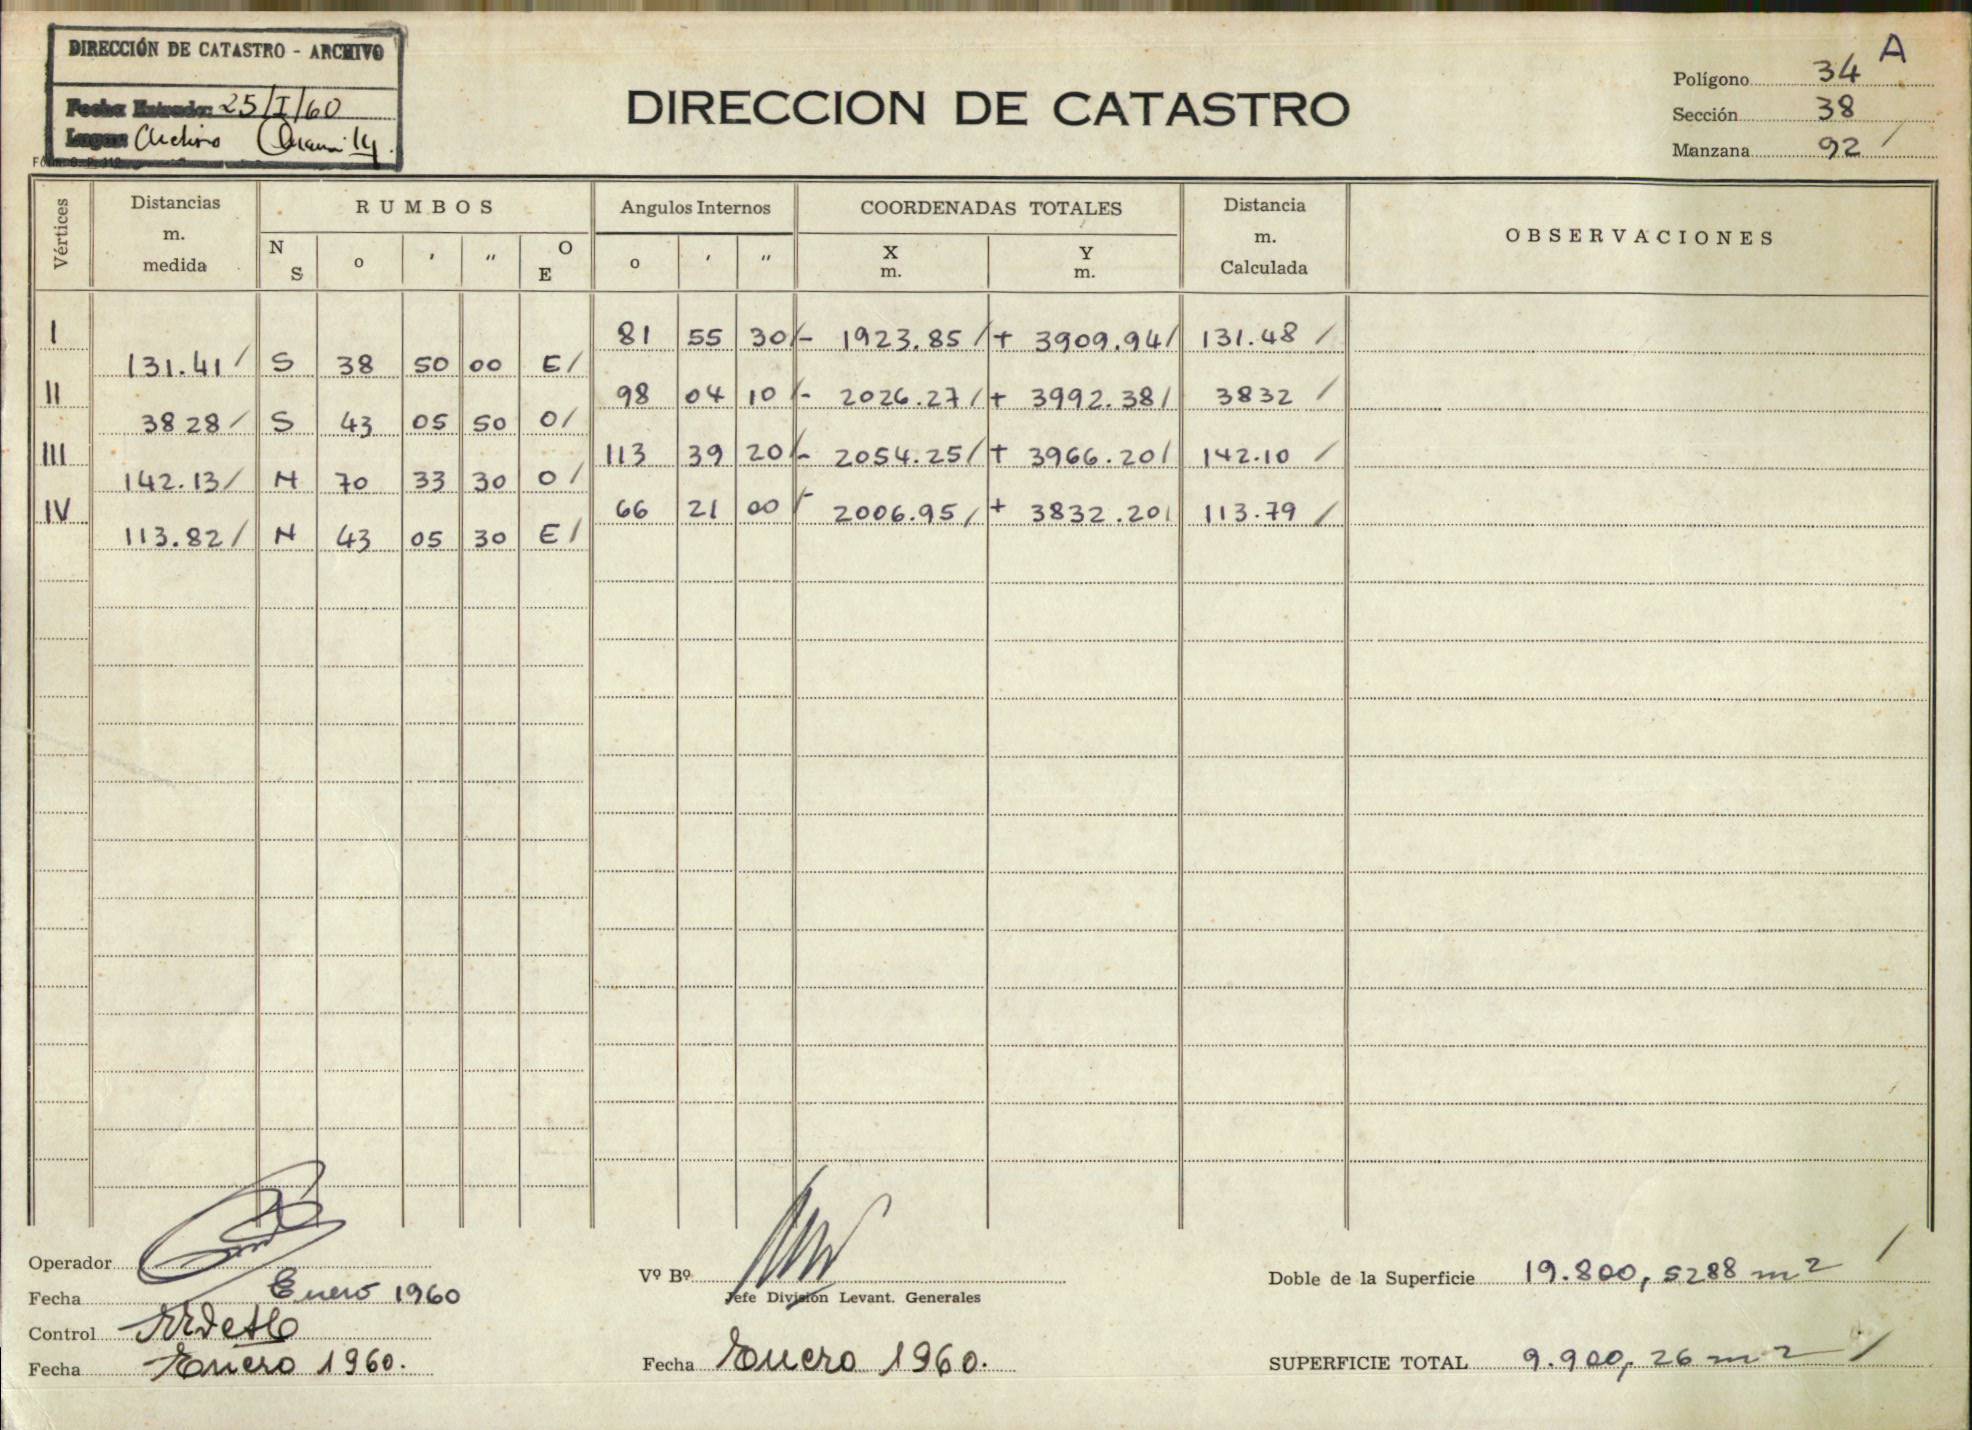 DIRECCIÓN DE CATASTRO - ARCHIVO
Fecha Entrada: 25/I/60
Archivo
DIRECCION DE CATASTRO
A
Polígono 34
Sección 38
Manzana 92 /
Vértices
Distancias m. medida
RUMBOS
N S o ′ ″ O E
Angulos Internos
o ′ ″
COORDENADAS TOTALES
X m. Y m.
Distancia m. Calculada
OBSERVACIONES
I 81 55 30 /- 1923.85 / + 3909.94 / 131.48 /
131.41 / S 38 50 00 E /
II 98 04 10 /- 2026.27 / + 3992.38 / 3832 /
3828 / S 43 05 50 O /
III 113 39 20 /- 2054.25 / + 3966.20 / 142.10 /
142.13 / N 70 33 30 O /
IV 66 21 00 /- 2006.95 / + 3832.20 / 113.79 /
113.82 / N 43 05 30 E /
Operador
Fecha Enero 1960
Control
Fecha Enero 1960.
Vº Bº
Jefe División Levant. Generales
Fecha Enero 1960.
Doble de la Superficie 19.800, 5288 m2 /
SUPERFICIE TOTAL 9.900, 26 m2 /